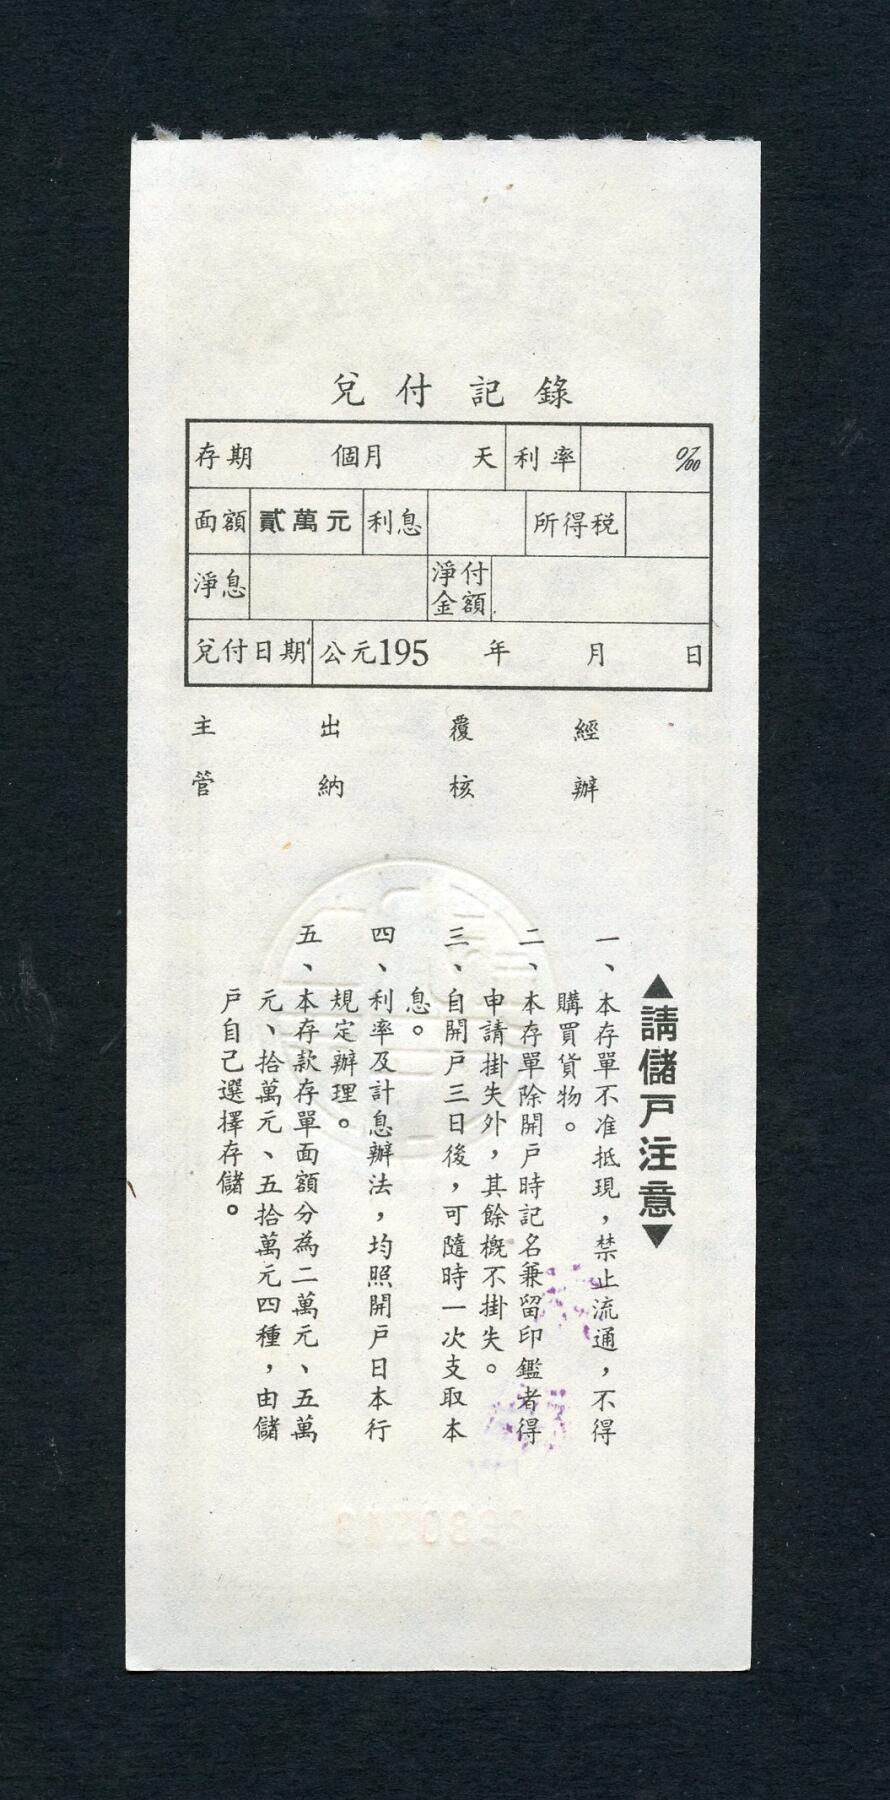 兌付記錄
存期 個月 天 利率 ‱
面額 貳萬元 利息 所得税
淨息 淨付金額
兌付日期 公元195 年 月 日
主管 出納 覆核 經辦
▲請儲戶注意▼
一、本存單不准抵現，禁止流通，不得
購買貨物。
二、本存單除開戶時記名兼留印鑑者得
申請掛失外，其餘概不掛失。
三、自開戶三日後，可隨時一次支取本
息。
四、利率及計息辦法，均照開戶日本行
規定辦理。
五、本存款存單面額分為二萬元、五萬
元、拾萬元、五拾萬元四種，由儲
戶自己選擇存儲。